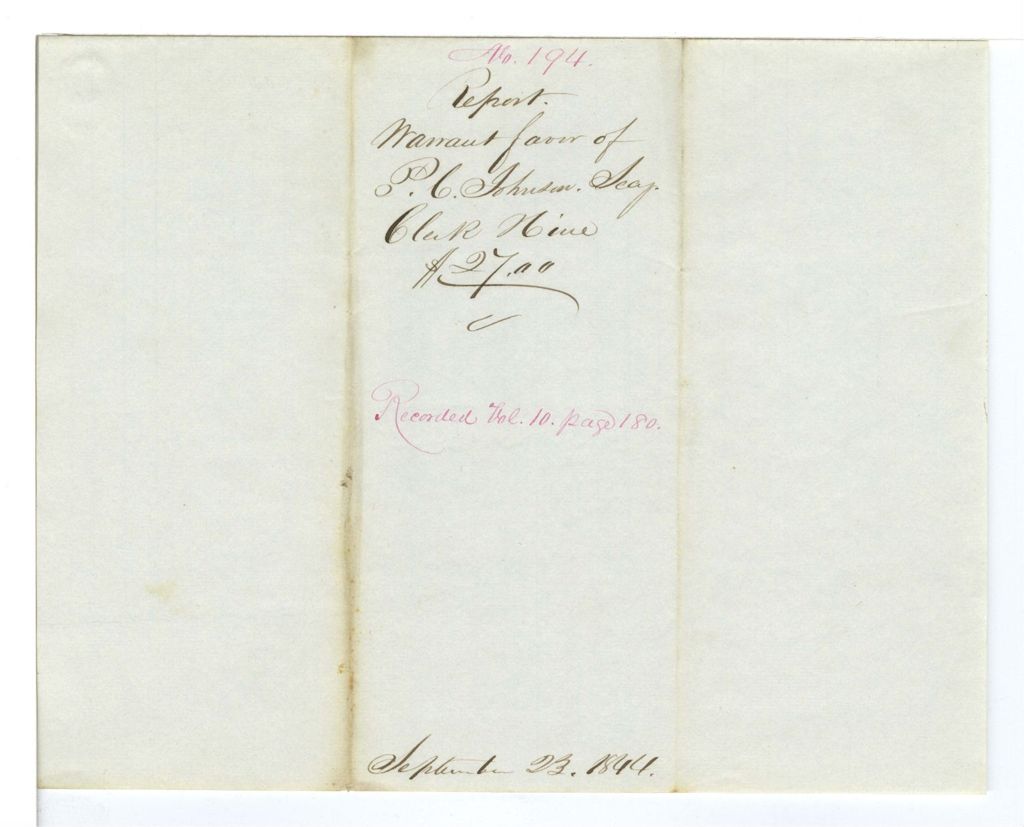 No. 194.
Report.
Warrant favor of
P. C. Johnson. Seay.
Clerk Hire
$27.00
Recorded Vol. 10. page 180.
September 23. 1844.